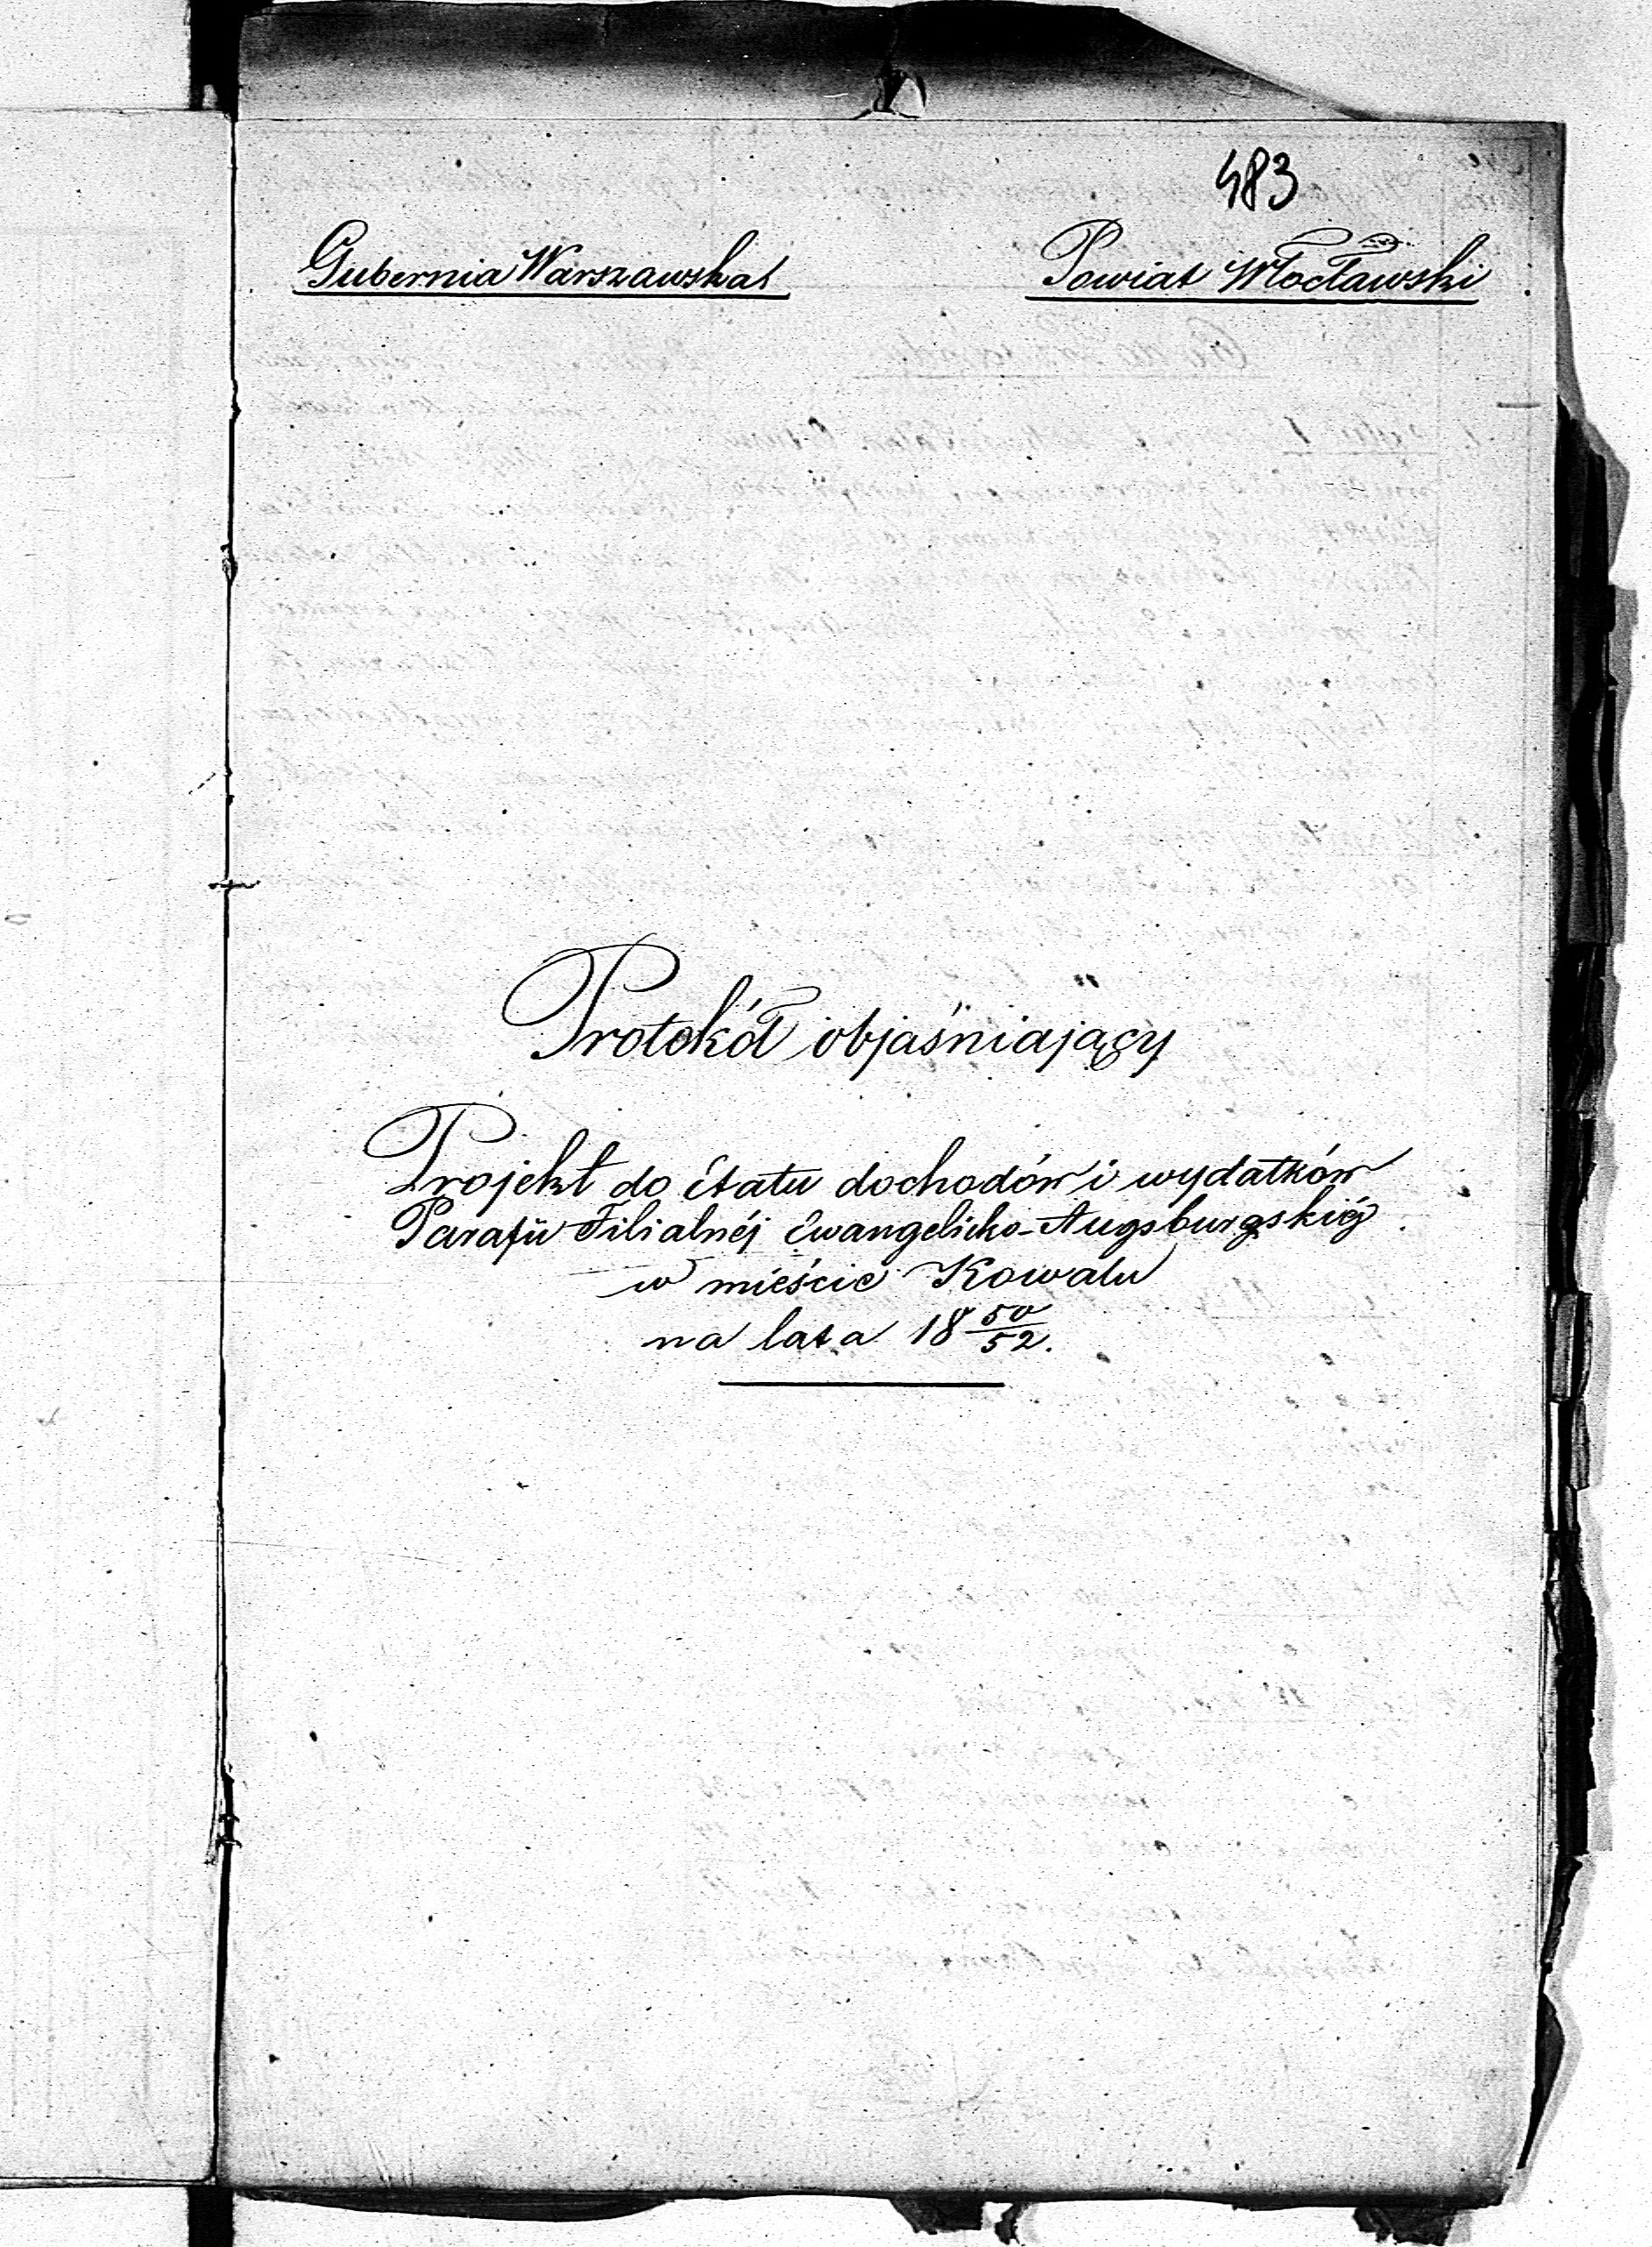 483
Gubernia Warszawska
Powiat Włocławski
Protokół objaśniający
Projekt do Etatu dochodów i wydatków
Parafii Filialnéj Ewangelicko-Augsburgskiéj
w mieście Kowalu
na lata 18 50/52.